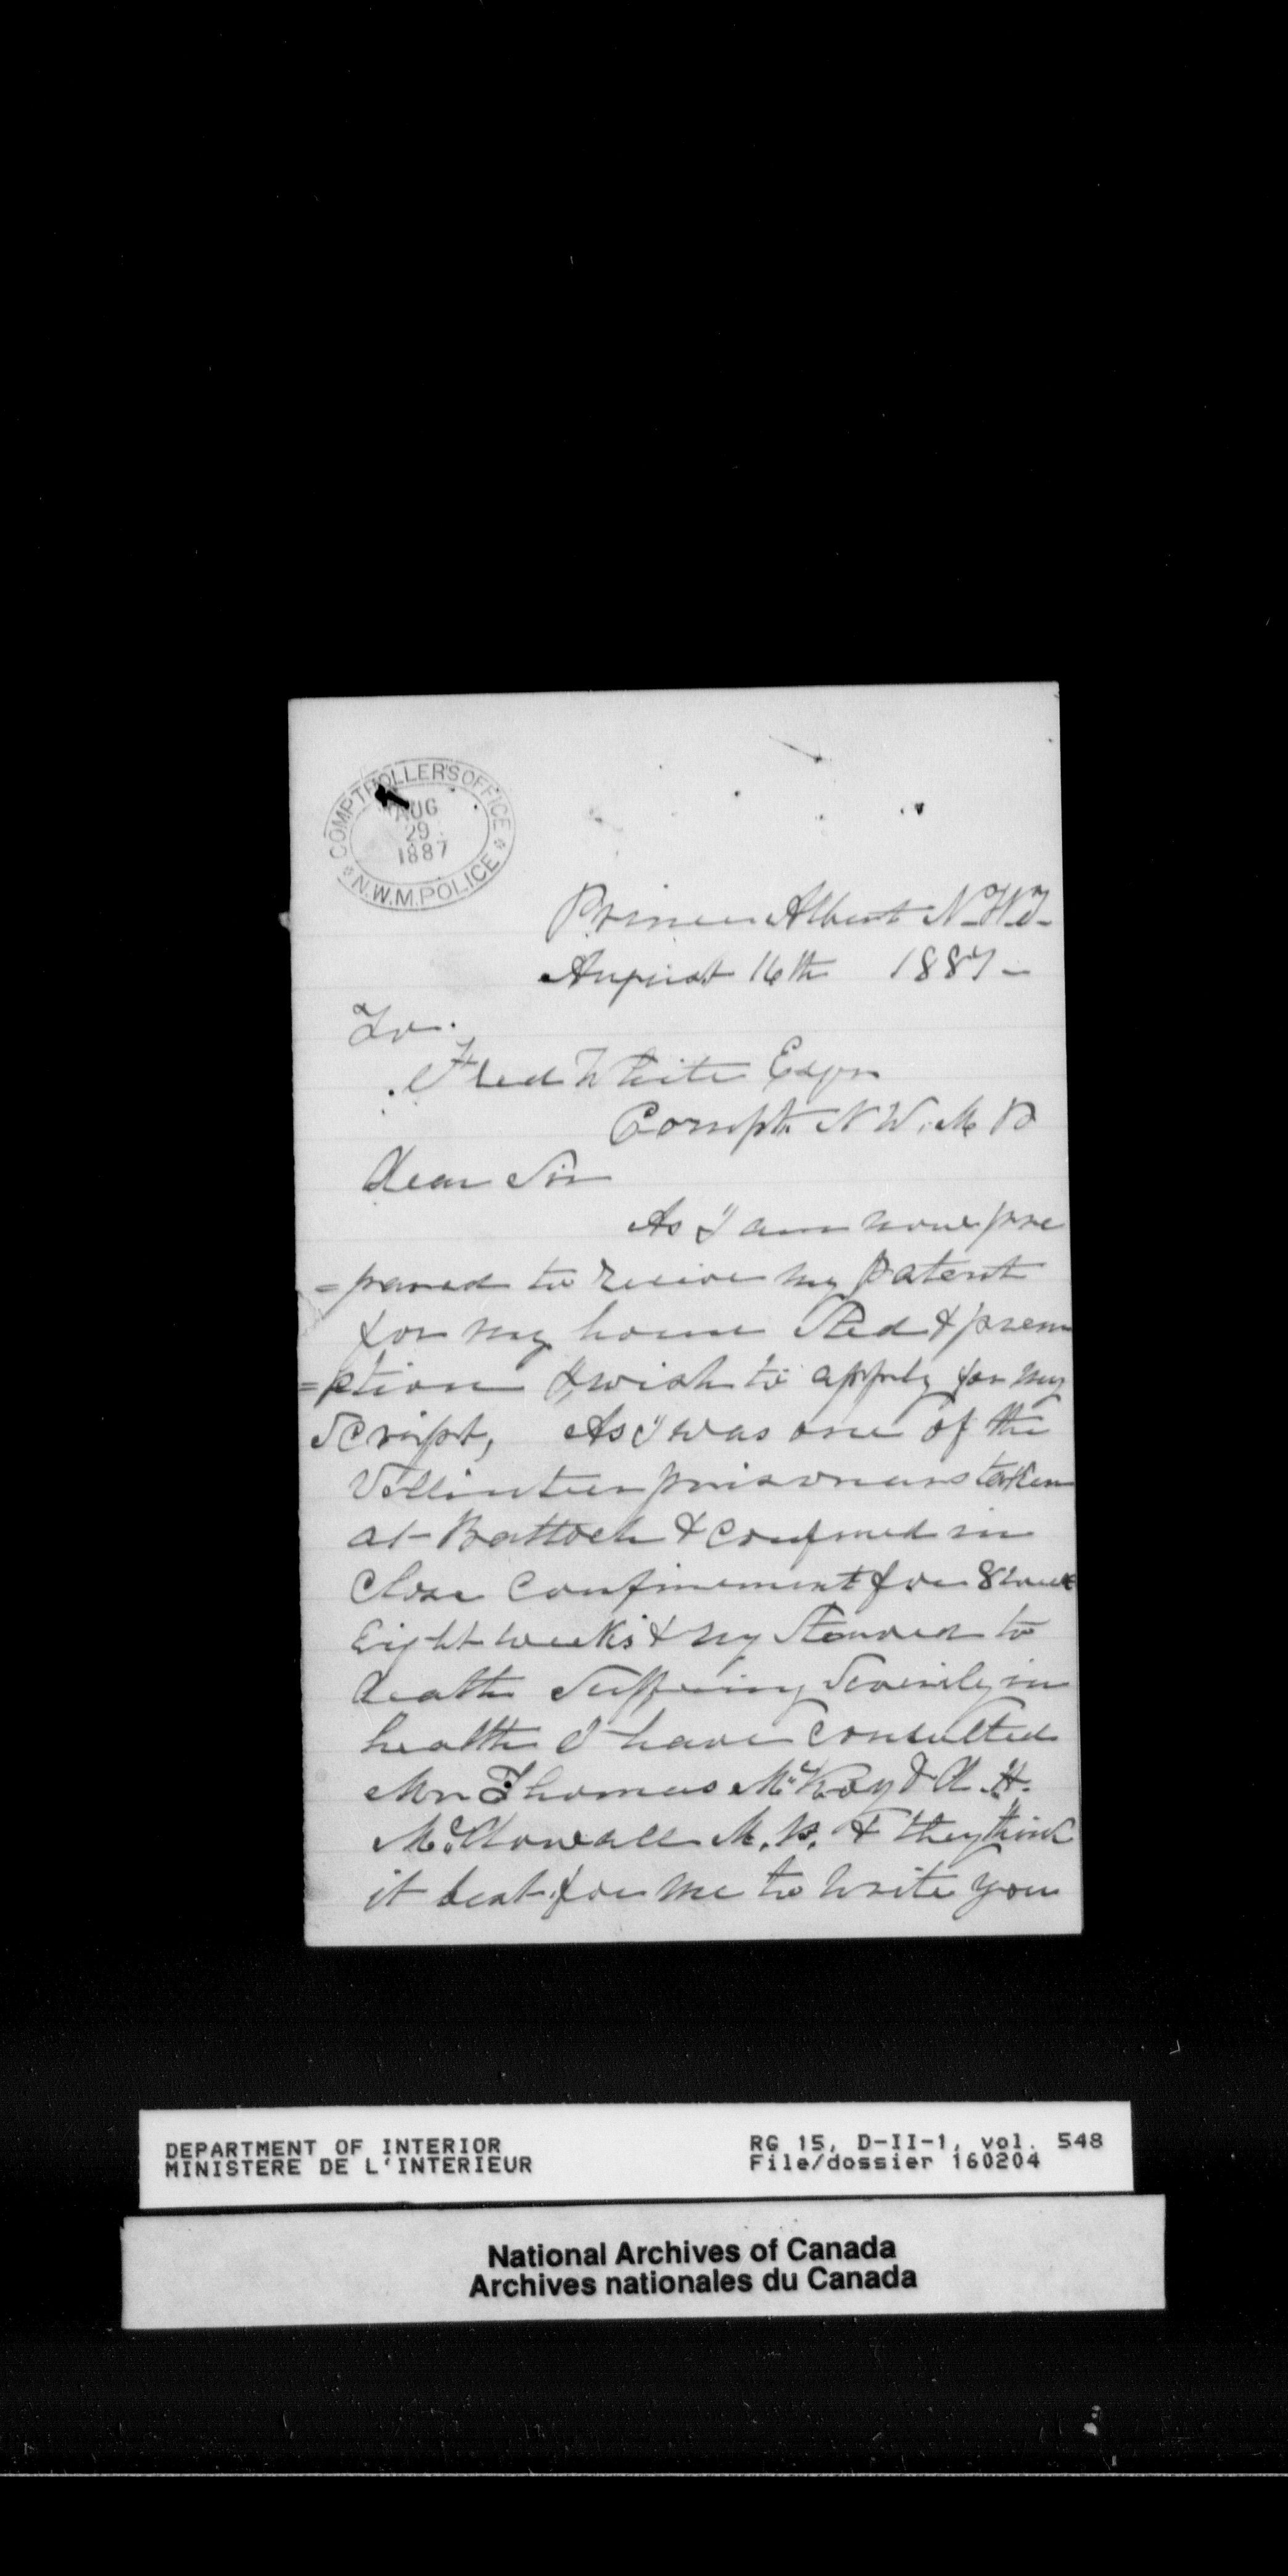 COMPTROLLER'S OFFICE
AUG
29
1887
N.W.M. POLICE
Prince Albert N.W.T.
August 16th 1887 -
To.
Fred White Esqr
Compt N W. M P
Dear Sir
As I am now pre
=pared to recive my patent
for my home Sted & prem
=ption & wish to apply for my
Script, As I was one of the
Vollinteer prisoners taken
at Battoch & confined in
Close Confinement for 8
Eight weeks & ny Starved to
death Suffering Severily in
health I have consulted
Mr Thomas McKay & D. H.
McDowall M.P. & they think
it best for me to write you
DEPARTMENT OF INTERIOR
MINISTERE DE L'INTERIEUR
RG 15, D-II-1, vol. 548
File/dossier 160204
National Archives of Canada
Archives nationales du Canada